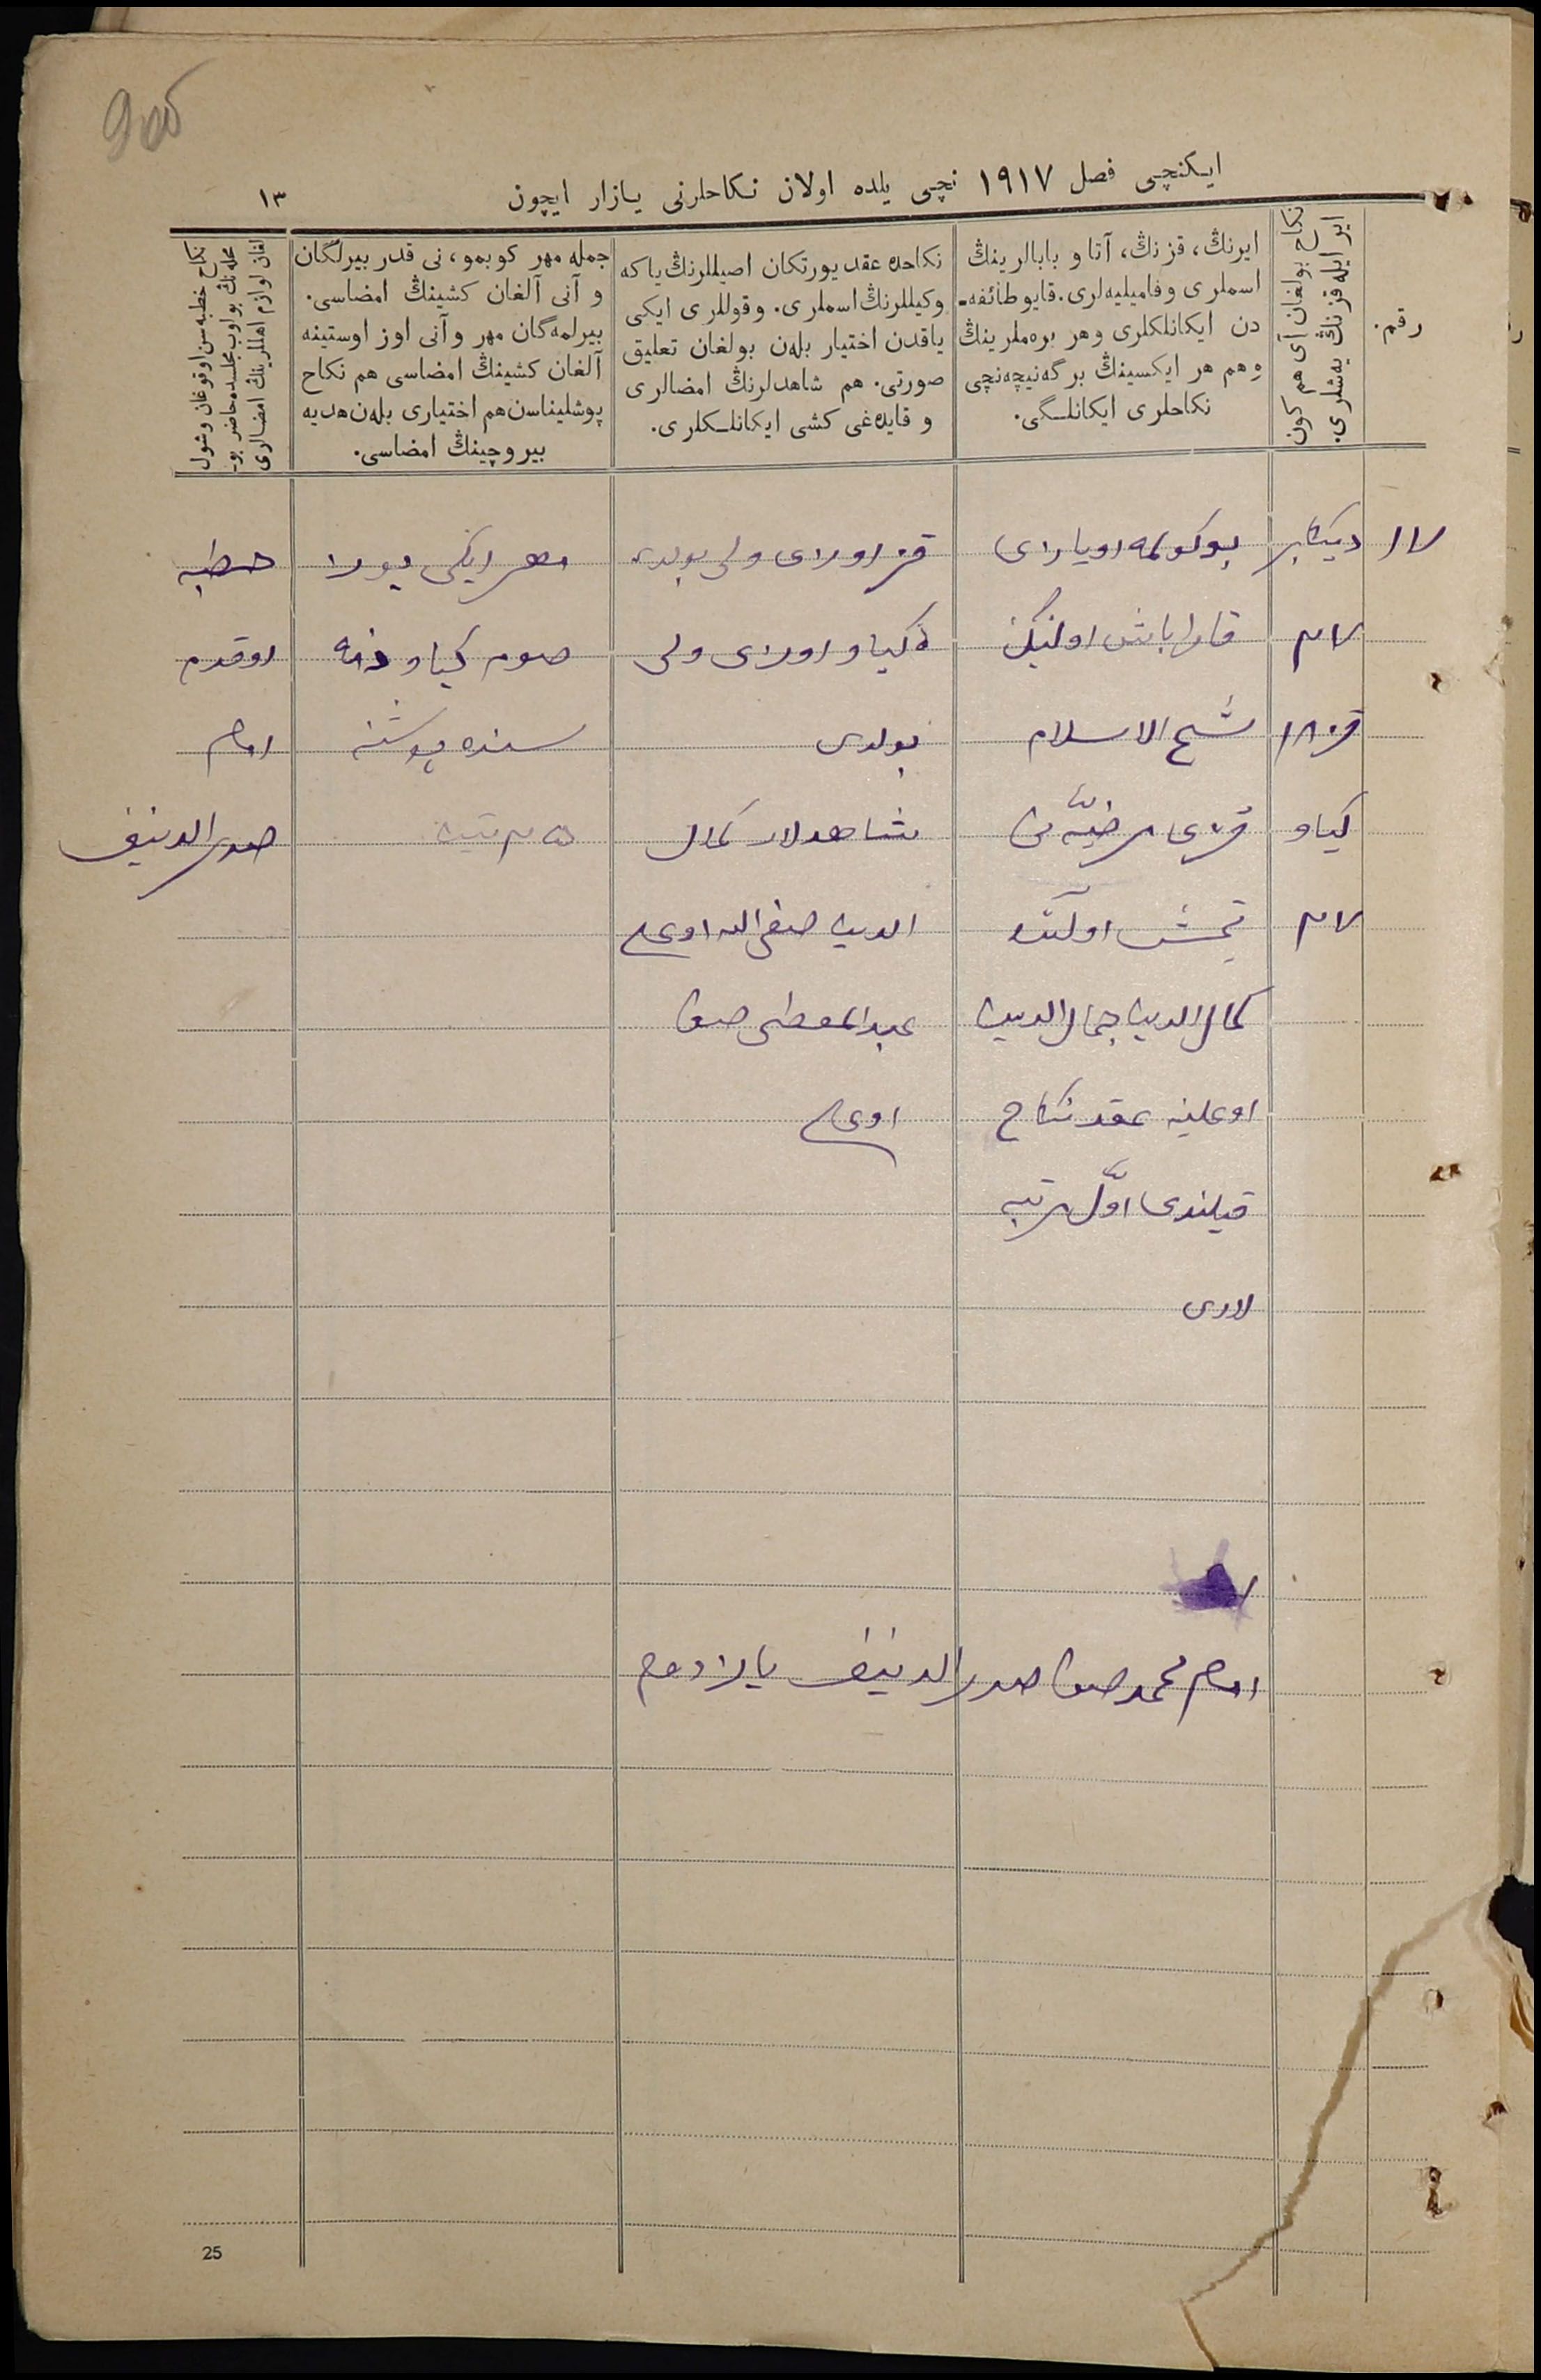 ایکنچی فصل ١٩١٧ نچی یلده اولان نکاحلرنی یازار ایچون
١٣
رقم.
نکاح بولغان آی هم کون
ایر ایله قزنڭ یه‌شلری.
ایرنڭ، قزنڭ، آتا و بابالرینڭ
اسملری وفامیلیه‌لری. قایو طائفه-
دن ایکانلکلری وهر بره‌ملرینڭ
وهم هر ایکسینڭ برگه نیچه‌نچی
نکاحلری ایکانلگی.
نکاحده عقد یورتکان اصیللرنڭ یاکه
وکیللرنڭ اسملری. وقوللری ایکی
یاقدن اختیار بله‌ن بولغان تعلیق
صورتی. هم شاهدلرنڭ امضالری
و قایده‌غی کشی ایکانلکلری.
جمله مهر کوبمو، نی قدر بیرلگان
و آنی آلغان کشینڭ امضاسی.
بیرلمه‌گان مهر و آنی اوز اوستینه
آلغان کشینڭ امضاسی هم نکاح
پوشلیناسن هم اختیاری بله‌ن هدیه
بیروچینڭ امضاسی.
نکاح خطبه‌سن اوقوغان وشول
محله‌نڭ بولوب مجلسده حاضر بو-
لغان لوازم اهللرینڭ امضالری
١٧
دیکابر
٢٧
قز ١٨
کیاو
٢٧
بوکولمه اویازی
قاراباش اولنیڭ
شیخ الاسلام
قزی مرضیّه نی
تحمش اولنده
کمال الدین جمال الدین
اوغلینه عقد نکاح
قیلندی اوّل مرتبه
لاری
قز اوزی ولی بولدی
کیاو اوزی ولی
بولدی
شاهدلار کمال
الدین صفی الله اوغلی
عبدالمعطی صفا
اوغلی
مهر ایکی یوز
صوم کیاو ذمه
سنده
خطبه
اوقدم
امام
صدرالدینف
امام محمد صفا صدرالدینف یازدوم
25